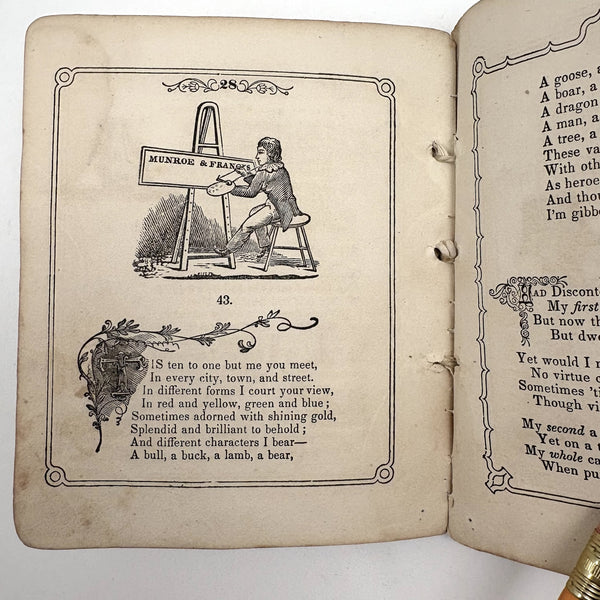 28
MUNROE & FRANCIS
43.
TIS ten to one but me you meet,
In every city, town, and street.
In different forms I court your view,
In red and yellow, green and blue;
Sometimes adorned with shining gold,
Splendid and brilliant to behold;
And different characters I bear—
A bull, a buck, a lamb, a bear,
A goose, a
A boar, a
A dragon
A man, a
A tree, a
These va
With oth
As heroe
And thou
I'm gibb
HAD Discont
My first
But now th
But dwe
Yet would I
No virtue c
Sometimes 'ti
Though vi
My second a
Yet on a t
My whole ca
When pu